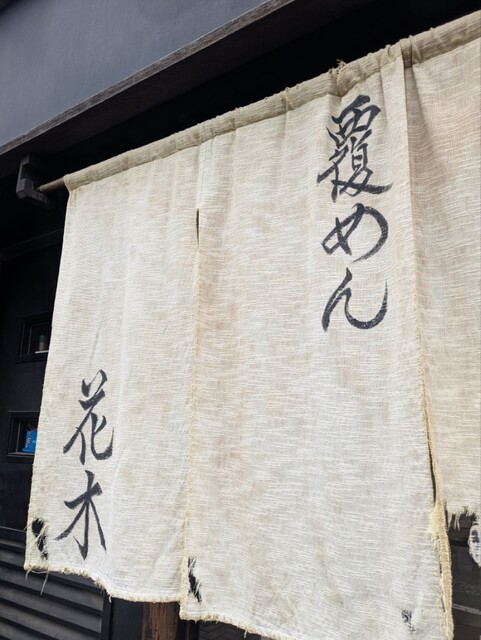 覆めん
花木